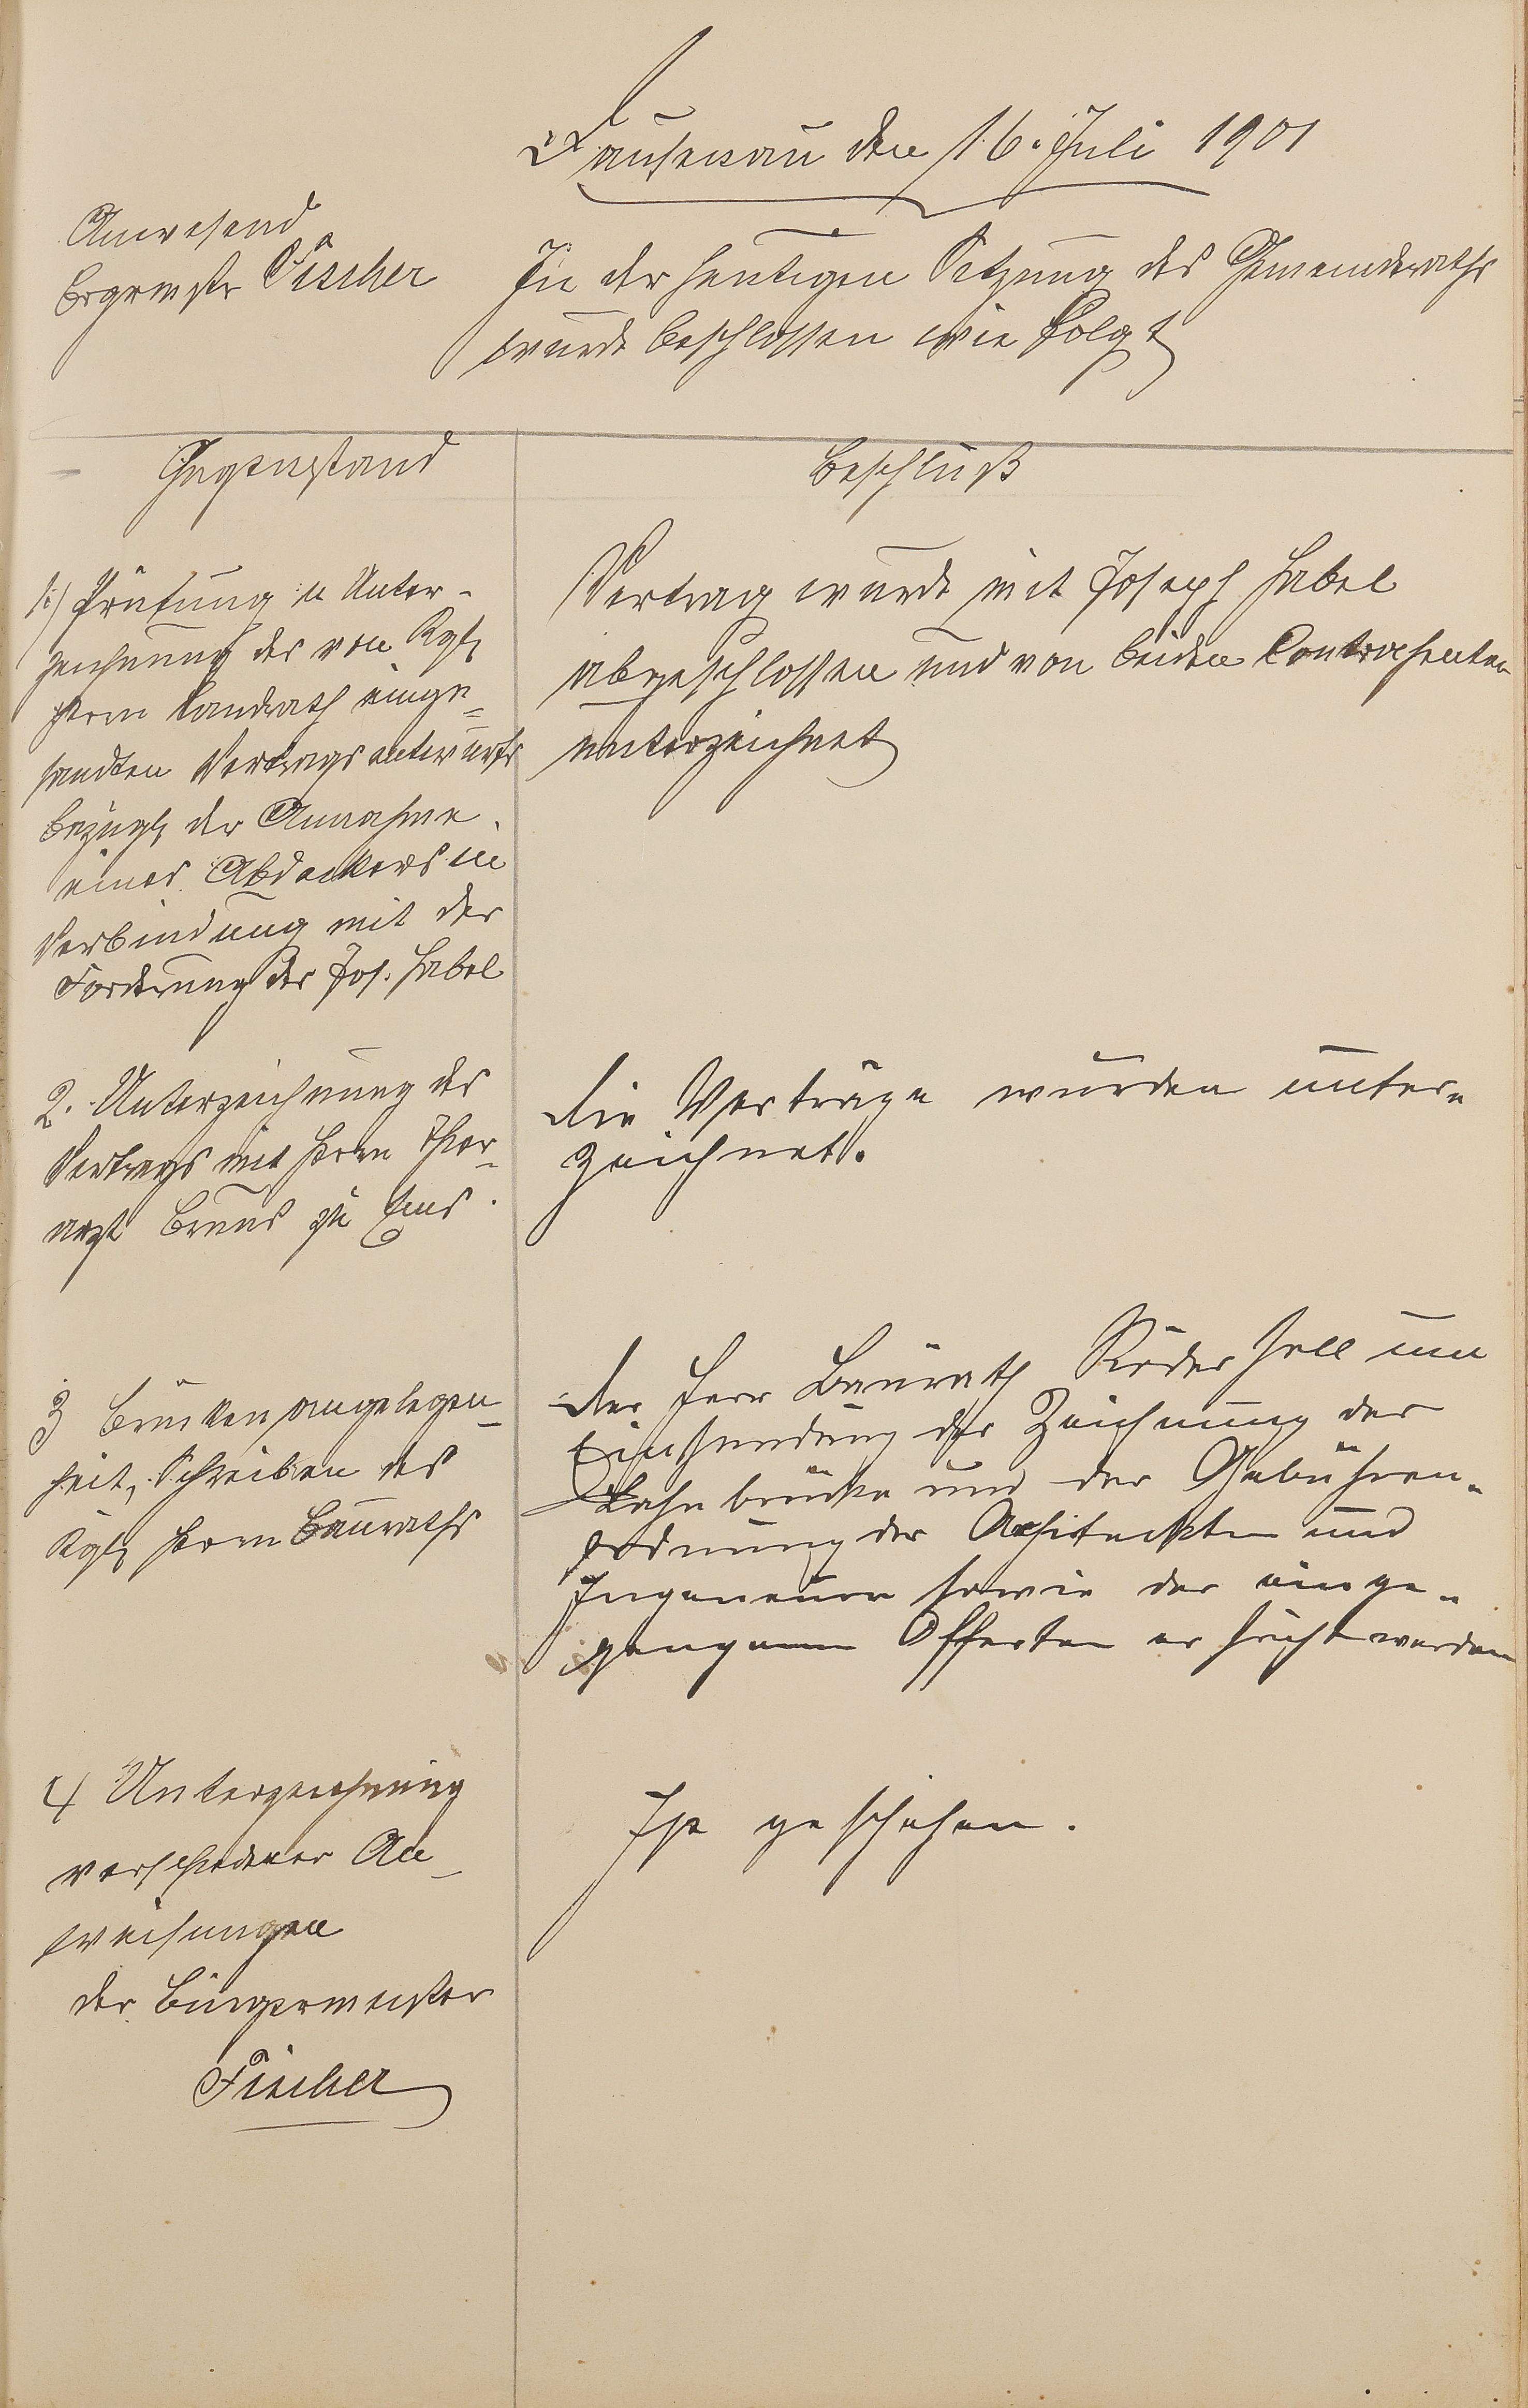 Dausenau den 16. Juli 1901
Anwesend
Brgrmstr Fischer
In der heutigen Sitzung des Gemeinderaths
wurde beschlossen wie folgt
Gegenstand
Beschluß
1.) Prüfung u Unter-
zeichnung des von Kgl.
Herrn Landrath einge=
sandten Vertragsentwurfs
bezügl. der Annahme
eines Abdeckers in
Verbindung mit der
Forderung des Jos. Habel
Vertrag wurde mit Joseph Habel
abgeschlossen und von beiden Contrahenten
unterzeichnet
2. Unterzeichnung des
Vertrags mit Herrn Thier-
arzt Bruns zu Ems.
Die Verträge wurden unter-
zeichnet.
3 Brückenangelegen-
heit, Schreiben des
Kgl. Herrn Bauraths
Der Herr Baurath Röder soll um
Einsendung der Zeichnung der
Lahnbrücke und der Gebühren-
ordnung der Achiteckten und
Ingeneure sowie der einge-
gangenen Offerten ersucht werden
4 Unterzeichnung
verschiedener An-
weisungen
Ist geschehen.
Der Bürgermeister
Fischer